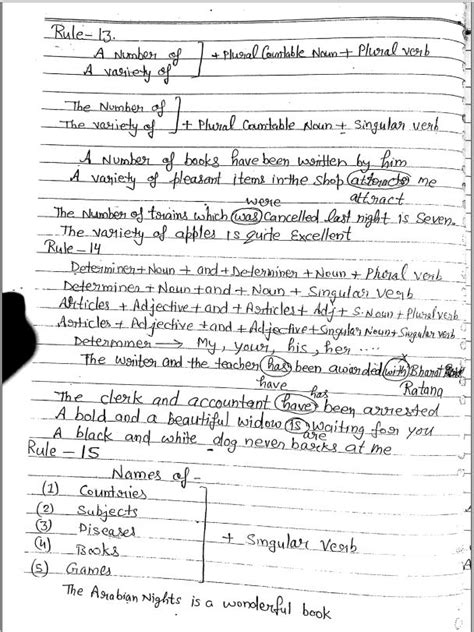 Rule-13.
A Number of
A variety of
+ Plural Countable Noun + Plural verb
The Number of
The variety of
+ Plural Countable Noun + Singular verb
A Number of books have been written by him
A variety of pleasant items in the shop attracts me
were attract
The Number of trains which was cancelled last night is Seven.
The variety of apples is quite Excellent
Rule-14
Determiner + Noun + and + Determiner + Noun + Plural verb
Determiner + Noun + and + Noun + Singular verb
Articles + Adjective + and + Articles + Adj + S.Noun + Plural verb
Articles + Adjective + and + Adjective + Singular Noun + Singular verb
Determiner → My, your, his, her ....
The writer and the teacher has been awarded with Bharat
have Ratana
has
The clerk and accountant have been arrested
A bold and a beautiful widow is waiting for you
are
A black and white dog never barks at me
Rule-15
Names of -
(1) Countries
(2) Subjects
(3) Diseases
(4) Books
(5) Games
+ Singular Verb
The Arabian Nights is a wonderful book